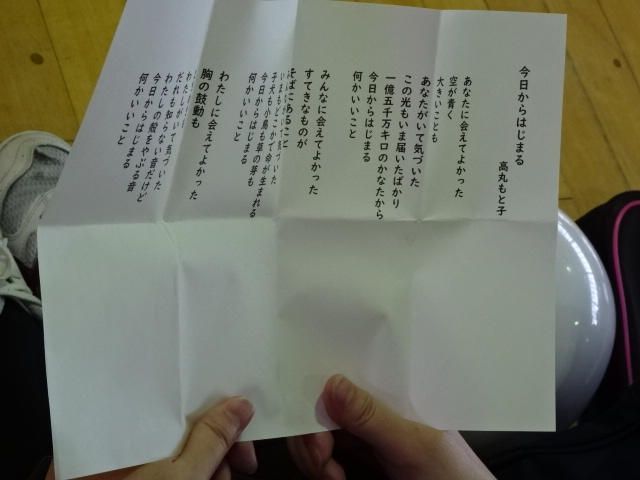 今日からはじまる
高丸もと子
あなたに会えてよかった
空が青く
大きいことも
あなたがいて気づいた
この光もいま届いたばかり
一億五千万キロのかなたから
今日からはじまる
何かいいこと
みんなに会えてよかった
すてきなものが
そばにあること
子犬も小鳥も草の芽も
今日からはじまる
何かいいこと
わたしに会えてよかった
胸の鼓動も
だれも知らない音だけど
わたしの殻をやぶる音
今日からはじまる
何かいいこと